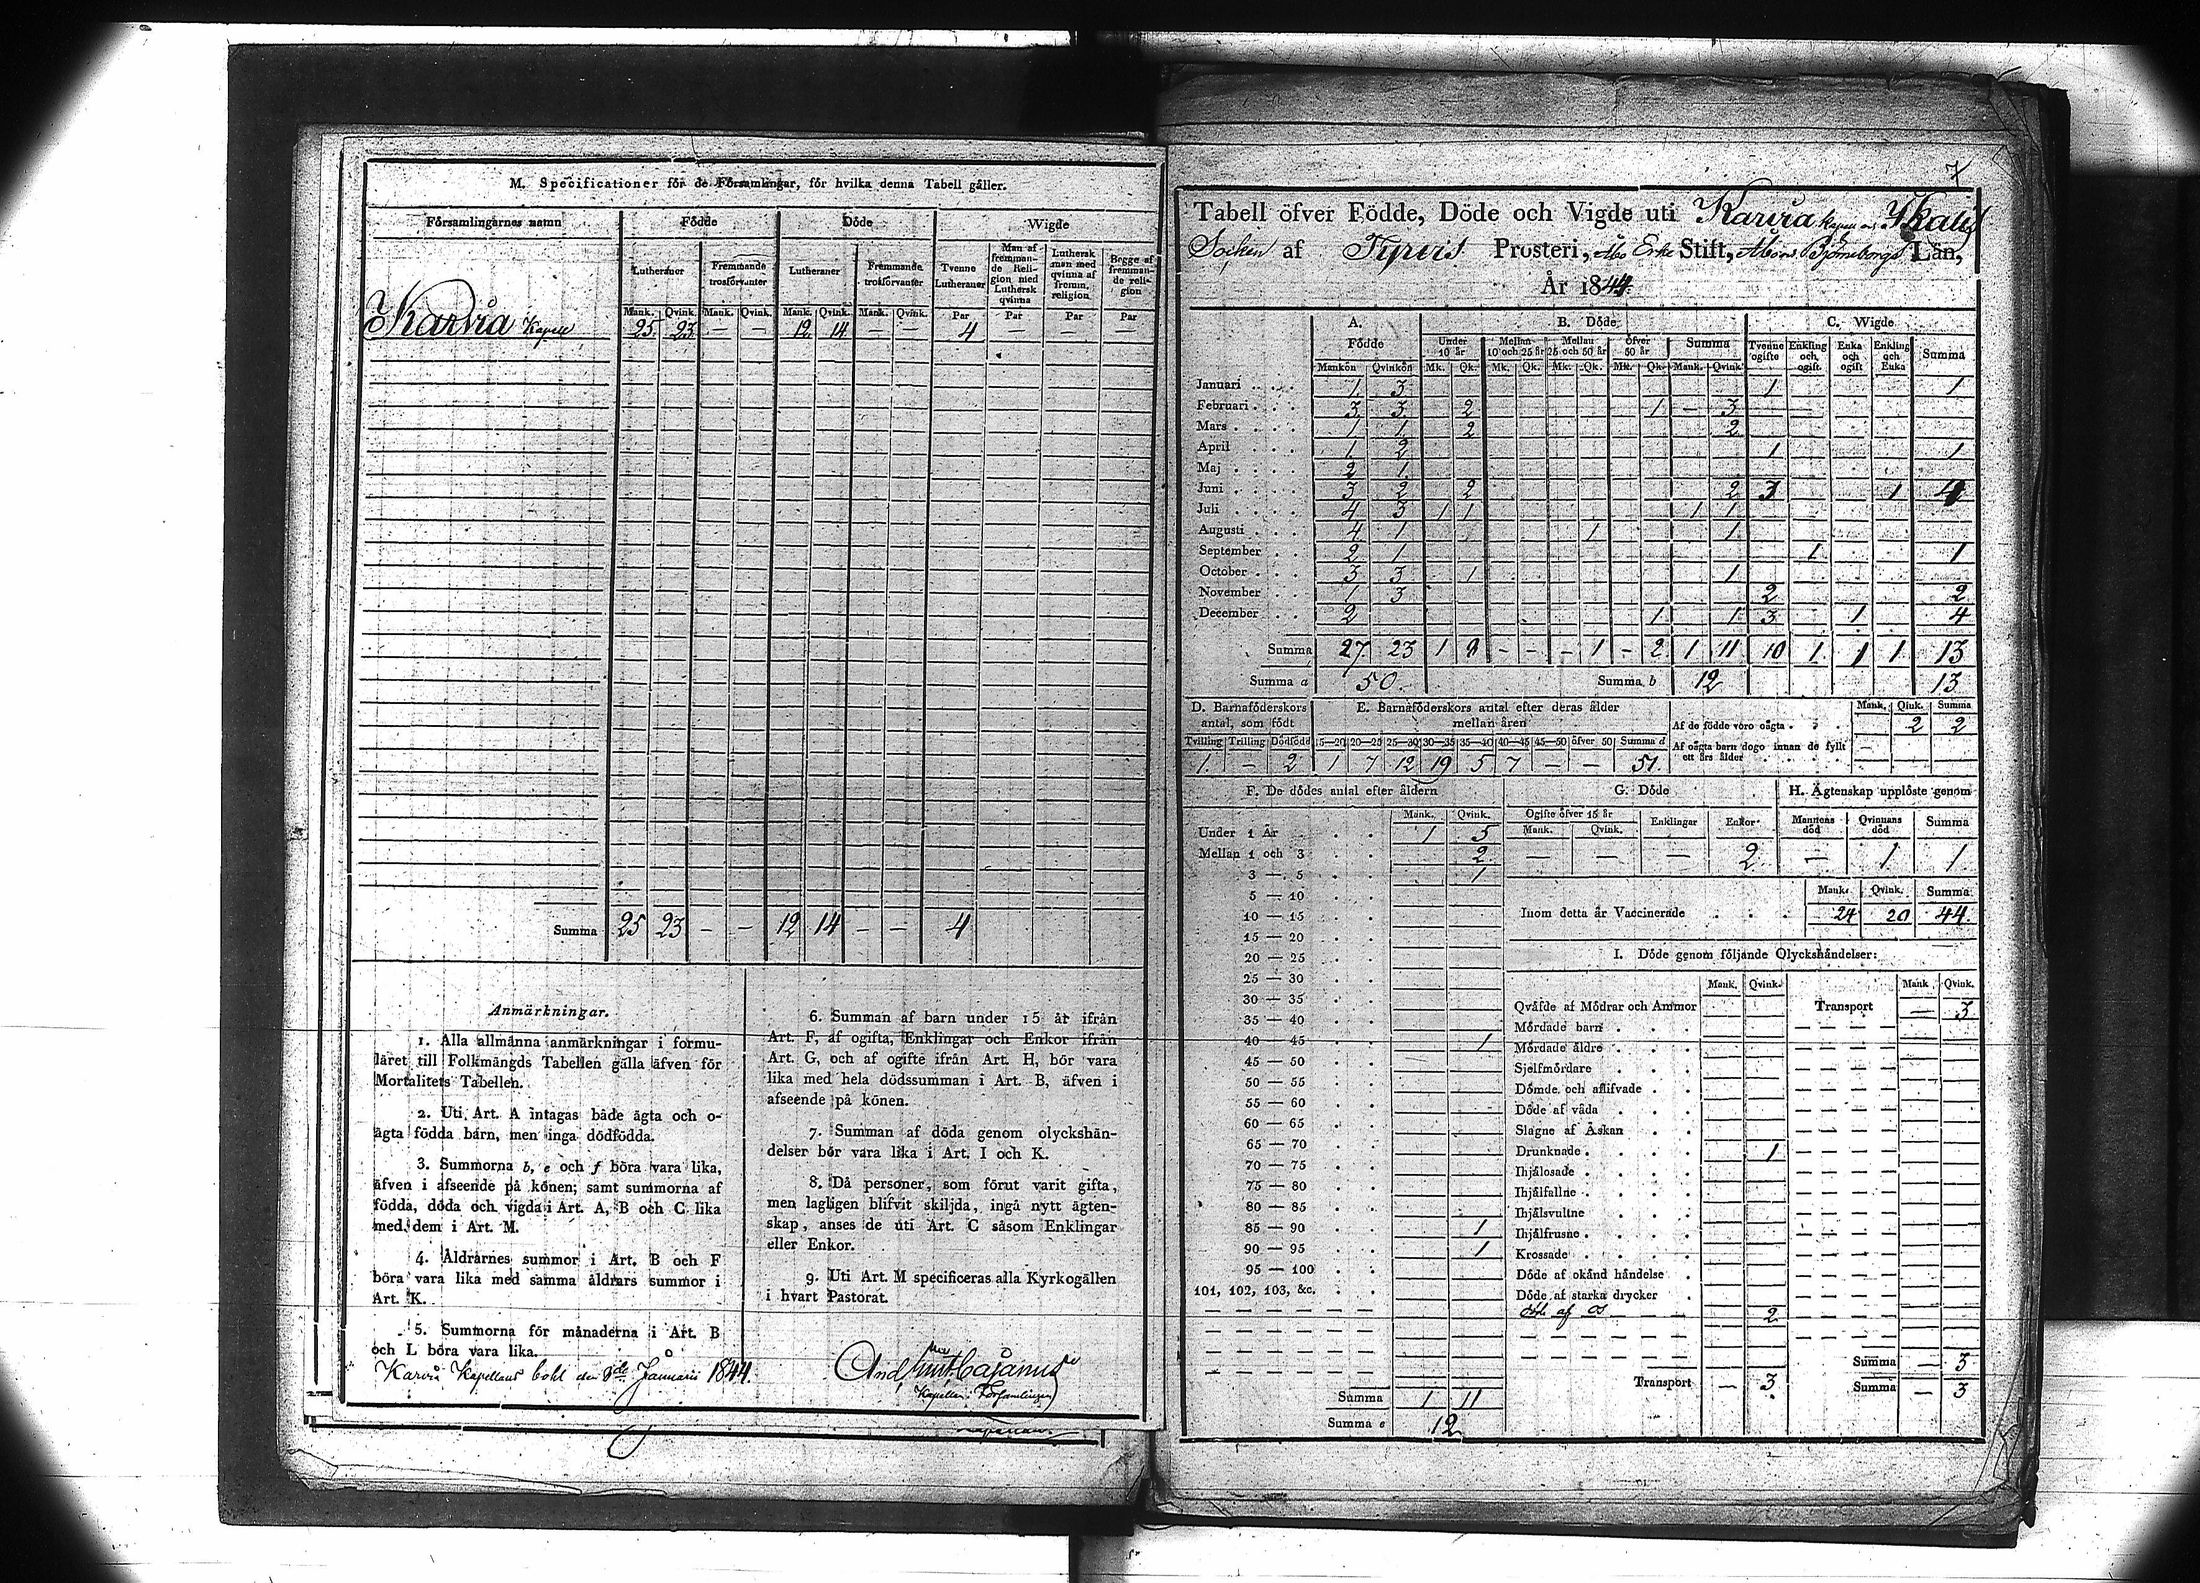 M. Specificationer för de Församlingar, för hvilka denna Tabell gäller.
Församlingarnes namn Födde Döde Wigde
Lutheraner Fremmande trosförvanter Lutheraner Fremmande trosförvanter Tvenne Lutheraner Man af fremmande Religion med Luthersk qvinna Luthersk man med qvinna af fremm. religion. Begge af fremmande religion
Mank. Qvink. Mank. Qvink. Mank. Qvink. Mank. Qvink. Par Par Par Par
Karvia Kapell 25 23 — — 12 14 — — 4 — — —
Summa 25 23 — — 12 14 — — 4
Anmärkningar.
1. Alla allmänna anmärkningar i formu-
läret till Folkmängds Tabellen gälla äfven för
Mortalitets Tabellen.
2. Uti Art. A intagas både ägta och o-
ägta födda barn, men inga dödfödda.
3. Summorna b, e och f böra vara lika,
äfven i afseende på könen; samt summorna af
födda, döda och vigda i Art. A, B och C lika
med dem i Art. M.
4. Åldrarnes summor i Art. B och F
böra vara lika med samma åldrars summor i
Art. K.
5. Summorna för månaderna i Art. B
och L böra vara lika.
6. Summan af barn under 15 år ifrån
Art. F, af ogifta, Enklingar och Enkor ifrån
Art. G, och af ogifte ifrån Art. H, bör vara
lika med hela dödssumman i Art. B, äfven i
afseende på könen.
7. Summan af döda genom olyckshän-
delser bör vara lika i Art. I och K.
8. Då personer, som förut varit gifta,
men lagligen blifvit skiljda, ingå nytt ägten-
skap, anses de uti Art. C såsom Enklingar
eller Enkor.
9. Uti Art. M specificeras alla Kyrkogällen
i hvart Pastorat.
Karvia Kapellans bohl den 8de Januarii 1844.
Cajanus
7
Tabell öfver Födde, Döde och Vigde uti Karvia Kapell
Socken af Tyrvis Prosteri, Åbo Erke Stift, Åbo Björneborgs Län,
År 1844.
A. Födde B. Döde C. Wigde
Under 10 år Mellan 10 och 25 år Mellan 25 och 50 år öfver 50 år Summa Tvenne ogifte Enkling och ogift Enka och ogift Enkling och Enka Summa
Mankön Qvinkön Mk. Qk. Mk. Qk. Mk. Qk. Mk. Qk. Mank. Qvink.
Januari 1 3 1 1
Februari 3 3 2 1 — 3
Mars 1 1 2 2
April 1 2 1 1
Maj 2 1
Juni 3 2 2 2 3 1 4
Juli 4 3 1 1 1 1
Augusti 4 1 1 1
September 2 1 1 1
October 3 3 1 1
November 1 3 2 2
December 2 1 1 3 1 4
Summa 27 23 1 8 — — — 1 — 2 1 11 10 1 1 1 13
Summa a 50. Summa b 12 13
D. Barnaföderskors antal, som födt E. Barnaföderskors antal efter deras ålder mellan åren Mank. Qink. Summa
Af de födde voro oägta 2 2
Tvilling Trilling Dödföde 15—20 20—25 25—30 30—35 35—40 40—45 45—50 öfver 50 Summa d
Af oägta barn dogo innan de fyllt ett års ålder —
1 — 2 1 7 12 19 5 7 — — 51.
F. De dödes antal efter åldern
Mank. Qvink.
Under 1 År 1 5
Mellan 1 och 3 2
3 — 5 1
5 — 10
10 — 15
15 — 20
20 — 25
25 — 30
30 — 35
35 — 40
40 — 45 1
45 — 50
50 — 55
55 — 60
60 — 65
65 — 70
70 — 75
75 — 80
80 — 85
85 — 90 1
90 — 95 1
95 — 100
101, 102, 103, &c.
Summa 1 11
Summa e 12
G. Döde H. Ägtenskap upplöste genom
Ogifte öfver 15 år Enklingar Enkor Mannens död Qvinnans död Summa
Mank. Qvink.
— — — 2 — 1 1
Mank. Qvink. Summa
Inom detta år Vaccinerade 24 20 44
I. Döde genom följande Olyckshändelser:
Mank. Qvink. Mank. Qvink.
Qväfde af Mödrar och Ammor Transport — 3
Mördade barn
Mördade äldre
Sjelfmördare
Dömde och aflifvade
Döde af våda
Slagne af Åskan
Drunknade 1
Ihjälosade
Ihjälfallne
Ihjälsvultne
Ihjälfrusne
Krossade
Döde af okänd händelse
Döde af starka drycker
Döde af os 2
Summa — 3
Transport — 3 Summa — 3